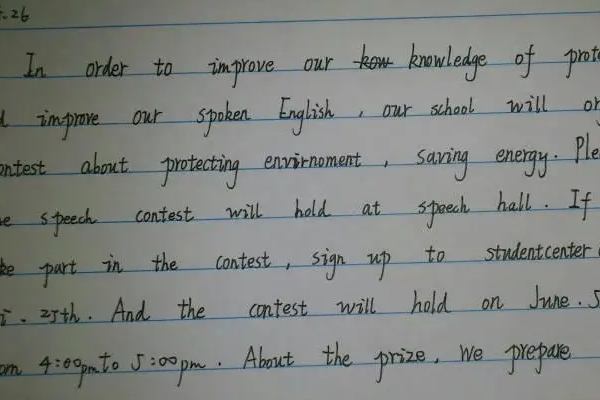 .26
In order to improve our knowledge of
improve our spoken English, our school will
about protecting envirnoment, saving energy.
speech contest will hold at speech hall. If
part in the contest, sign up to studentcenter
25th. And the contest will hold on June. 5
4:00pm to 5:00pm. About the prize, we prepare